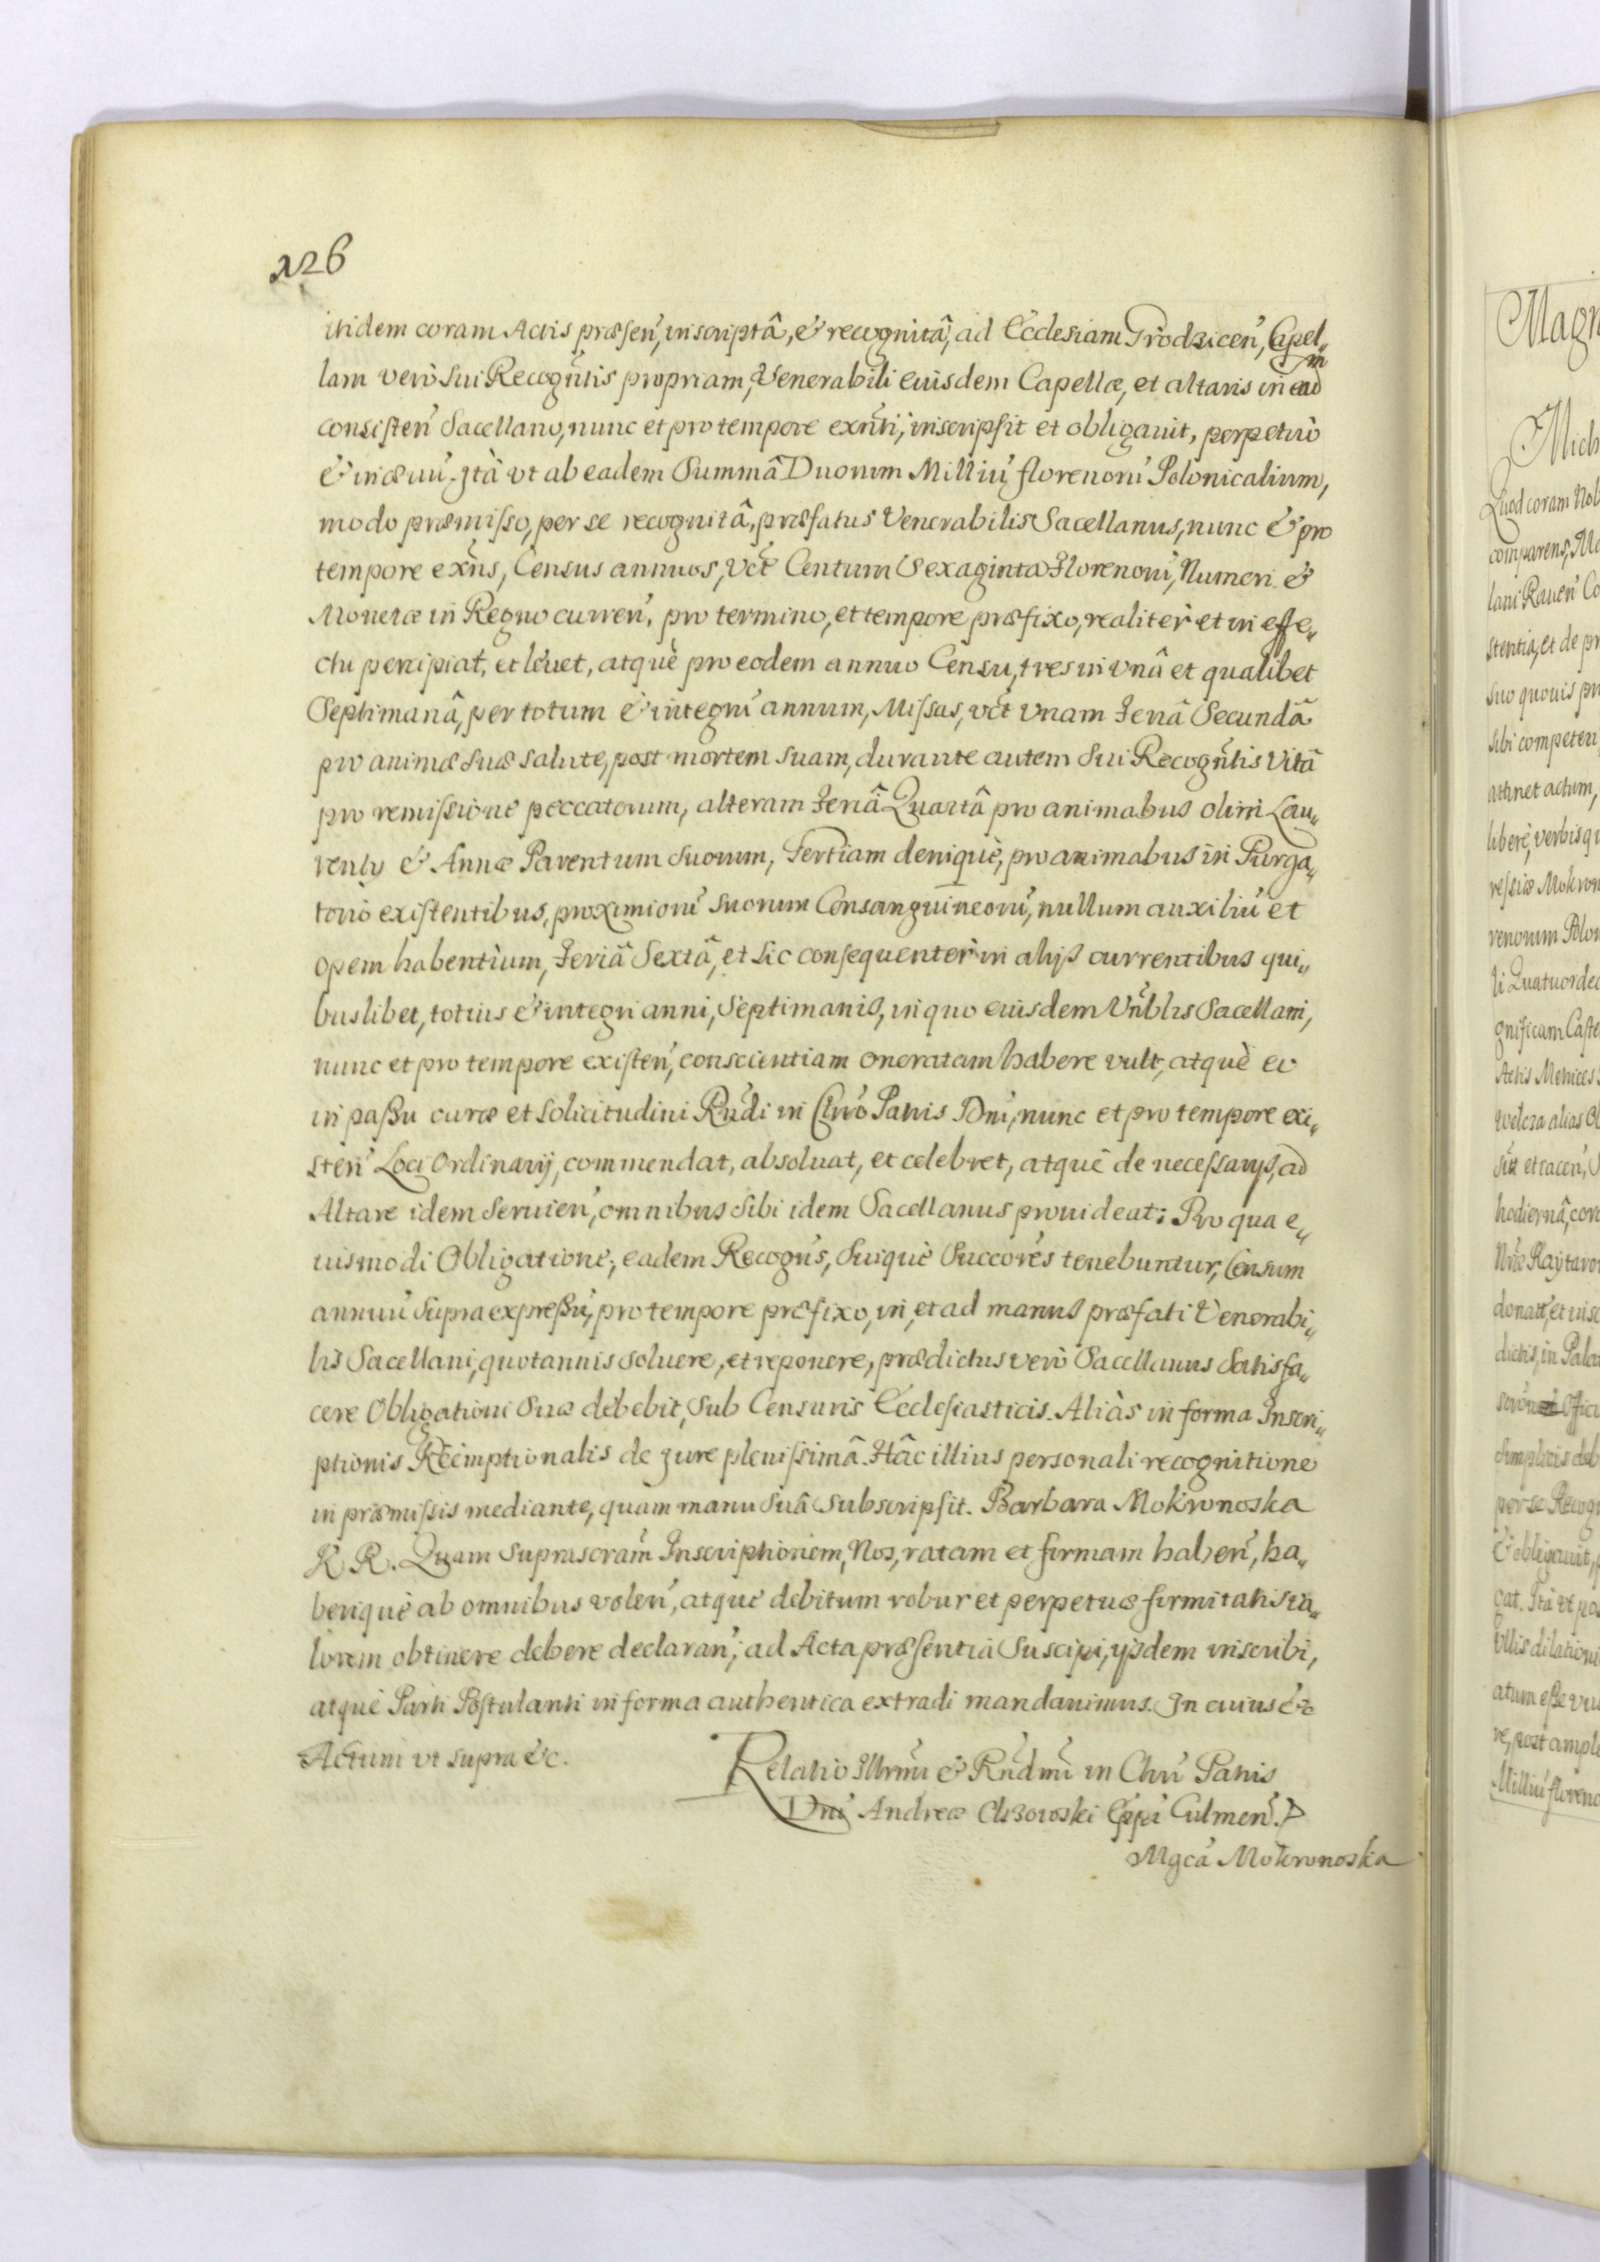 126
itidem coram Actis præsen, inscriptâ, & recognitâ, ad Ecclesiam Grodzicen, Capel„
lam verò sui Recogñtis propriam, Venerabili eiusdem Capellæ, et altaris in ead
m
consisten Sacellano, nunc et pro tempore exñti, inscripsit et obligauit, perpetuò
& in æuū. Ità vt ab eadem Summâ Duorum Milliū florenorū Polonicalium,
modo præmisso, per se recognitâ, præfatus Venerabilis Sacellanus, nunc & pro
tempore exñs, Census annuos, vct Centum Sexaginta Florenorū, Numeri &
Monetæ in Regno curren, pro termino, et tempore præfixo, realitèr et in effe„
ctu percipiat, et leuet, atquè pro eodem annuo Censu, tres in vnâ et qualibet
Septimanâ, per totum & integrū annum, Missas, vct vnam Feriâ Secundâ
pro animæ suæ salute, post mortem suam, durante autem sui Recogñtis vitâ
pro remissione peccatorum, alteram Feriâ Quartâ pro animabus olim Lau„
rentij & Annæ Parentum suorum, Tertiam deniquè, pro animabus in Purga„
torio existentibus, proximiorū suorum Consanguineorū, nullum auxiliū et
opem habentium, Feriâ Sextâ, et sic consequentèr in alijs currentibus qui„
buslibet, totius & integri anni, Septimanis, in quo eiusdem Vñblis Sacellani,
nunc et pro tempore existen, conscientiam oneratam habere vult, atquè eo
in passu curæ et solicitudini Rñdi in Chro Patris Dni, nunc et pro tempore exi„
sten Loci Ordinarij, commendat, absoluat, et celebret, atquè de necessarijs, ad
Altare idem seruien, omnibus sibi idem Sacellanus prouideat: Pro qua e„
iusmodi Obligatione, eadem Recogñs, suiquè Succores tenebuntur, Censum
annuū supra expressū, pro tempore præfixo, in, et ad manus præfati Venerabi„
lis Sacellani, quotannis soluere, et reponere, prædictus verò Sacellanus Satisfa„
cere Obligationi suæ debebit, sub Censuris Ecclesiasticis. Aliàs in forma Inscri„
ptionis Reemptionalis de iure plenissimâ. Hâc illius personali recognitione
in præmissis mediante, quam manu suâ subscripsit. Barbara Mokronoska
K R. Quam suprascram Inscriptionem, Nos, ratam et firmam haben, ha„
beriquè ab omnibus volen, atquè debitum robur et perpetuæ firmitatis va„
lorem obtinere debere declaran, ad Acta præsentia suscipi, ijsdem inscribi,
atquè Parti Postulanti in forma authentica extradi mandauimus. In cuius &c
Actum vt supra &c.
Relatio Illrmi & Rñdmi in Chro Patris
Dni Andreæ Olszowski Eppi Culmen.
Mgca Mokronoska